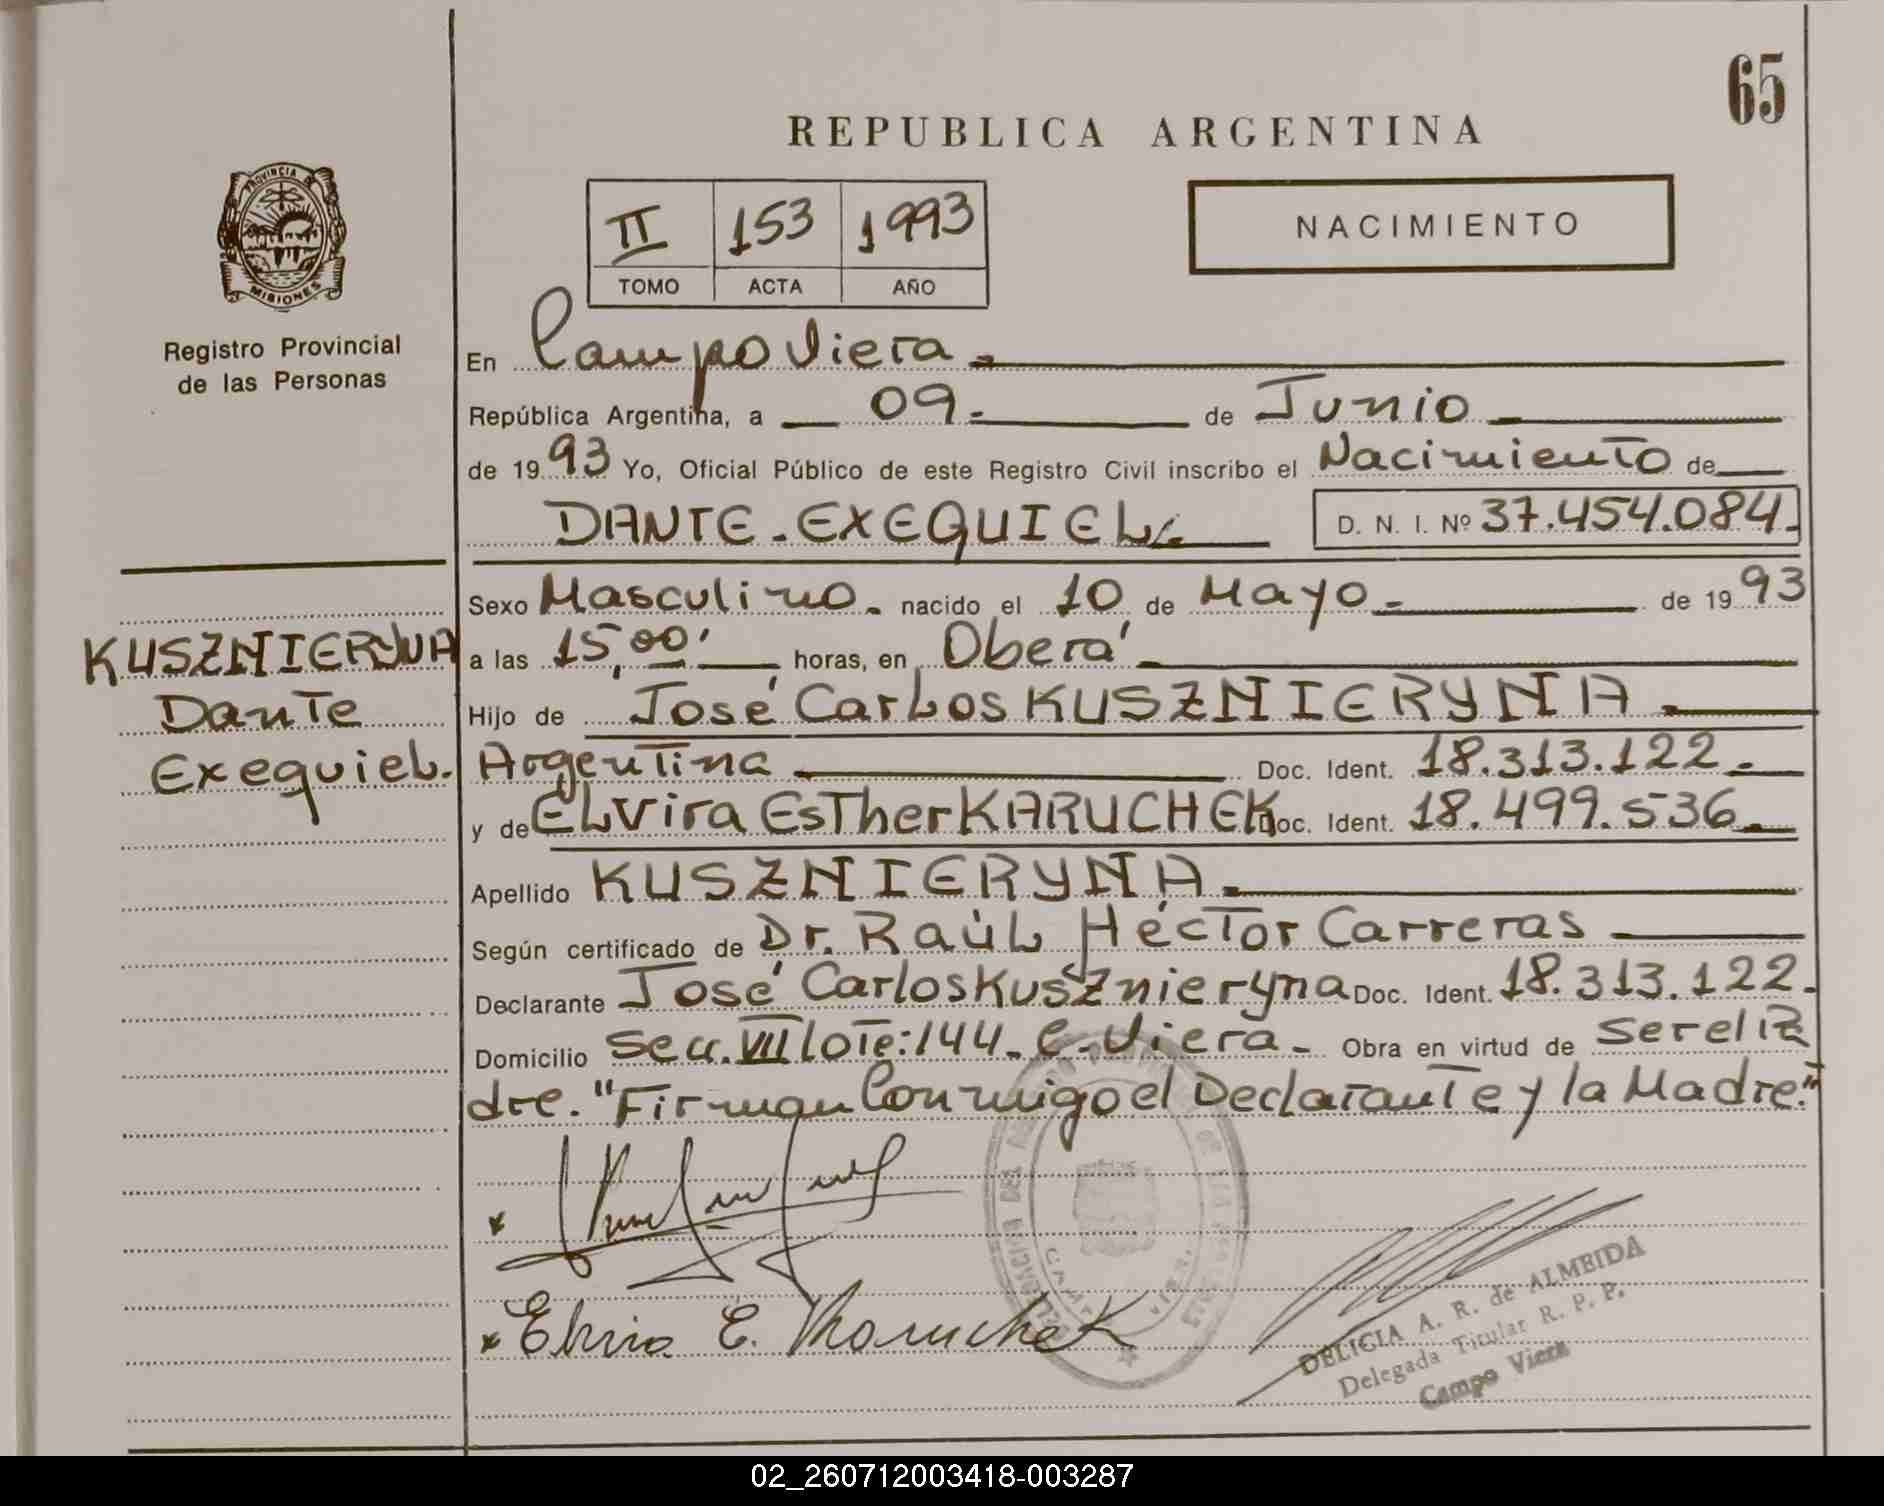 65
REPUBLICA ARGENTINA
PROVINCIA DE
MISIONES
Registro Provincial
de las Personas
II 153 1993
TOMO ACTA AÑO
NACIMIENTO
En Campo Viera.
República Argentina, a 09. de Junio
de 1993 Yo, Oficial Público de este Registro Civil inscribo el Nacimiento de
DANTE.EXEQUIEL. D. N. I. Nº 37.454.084.
Sexo Masculino. nacido el 10 de Mayo. de 1993
KUSZNIERYNA
Dante
Exequiel.
a las 15,00' horas, en Oberá
Hijo de José Carlos KUSZNIERYNA.
Argentina Doc. Ident. 18.313.122.
y de ELvira EsTher KARUCHEK Doc. Ident. 18.499.536.
Apellido KUSZNIERYNA.
Según certificado de Dr. RaúL HécTor Carreras
Declarante José Carlos Kusznieryna Doc. Ident. 18.313.122.
Domicilio Secc. VII loTe:144. C. Viera. Obra en virtud de ser el Pa
dre. "Firman Conmigo el Declarante y la Madre."
Elvira E. Karuchek
DELICIA A. R. de ALMEIDA
Delegada Titular R. P. P.
Campo Viera
02_260712003418-003287